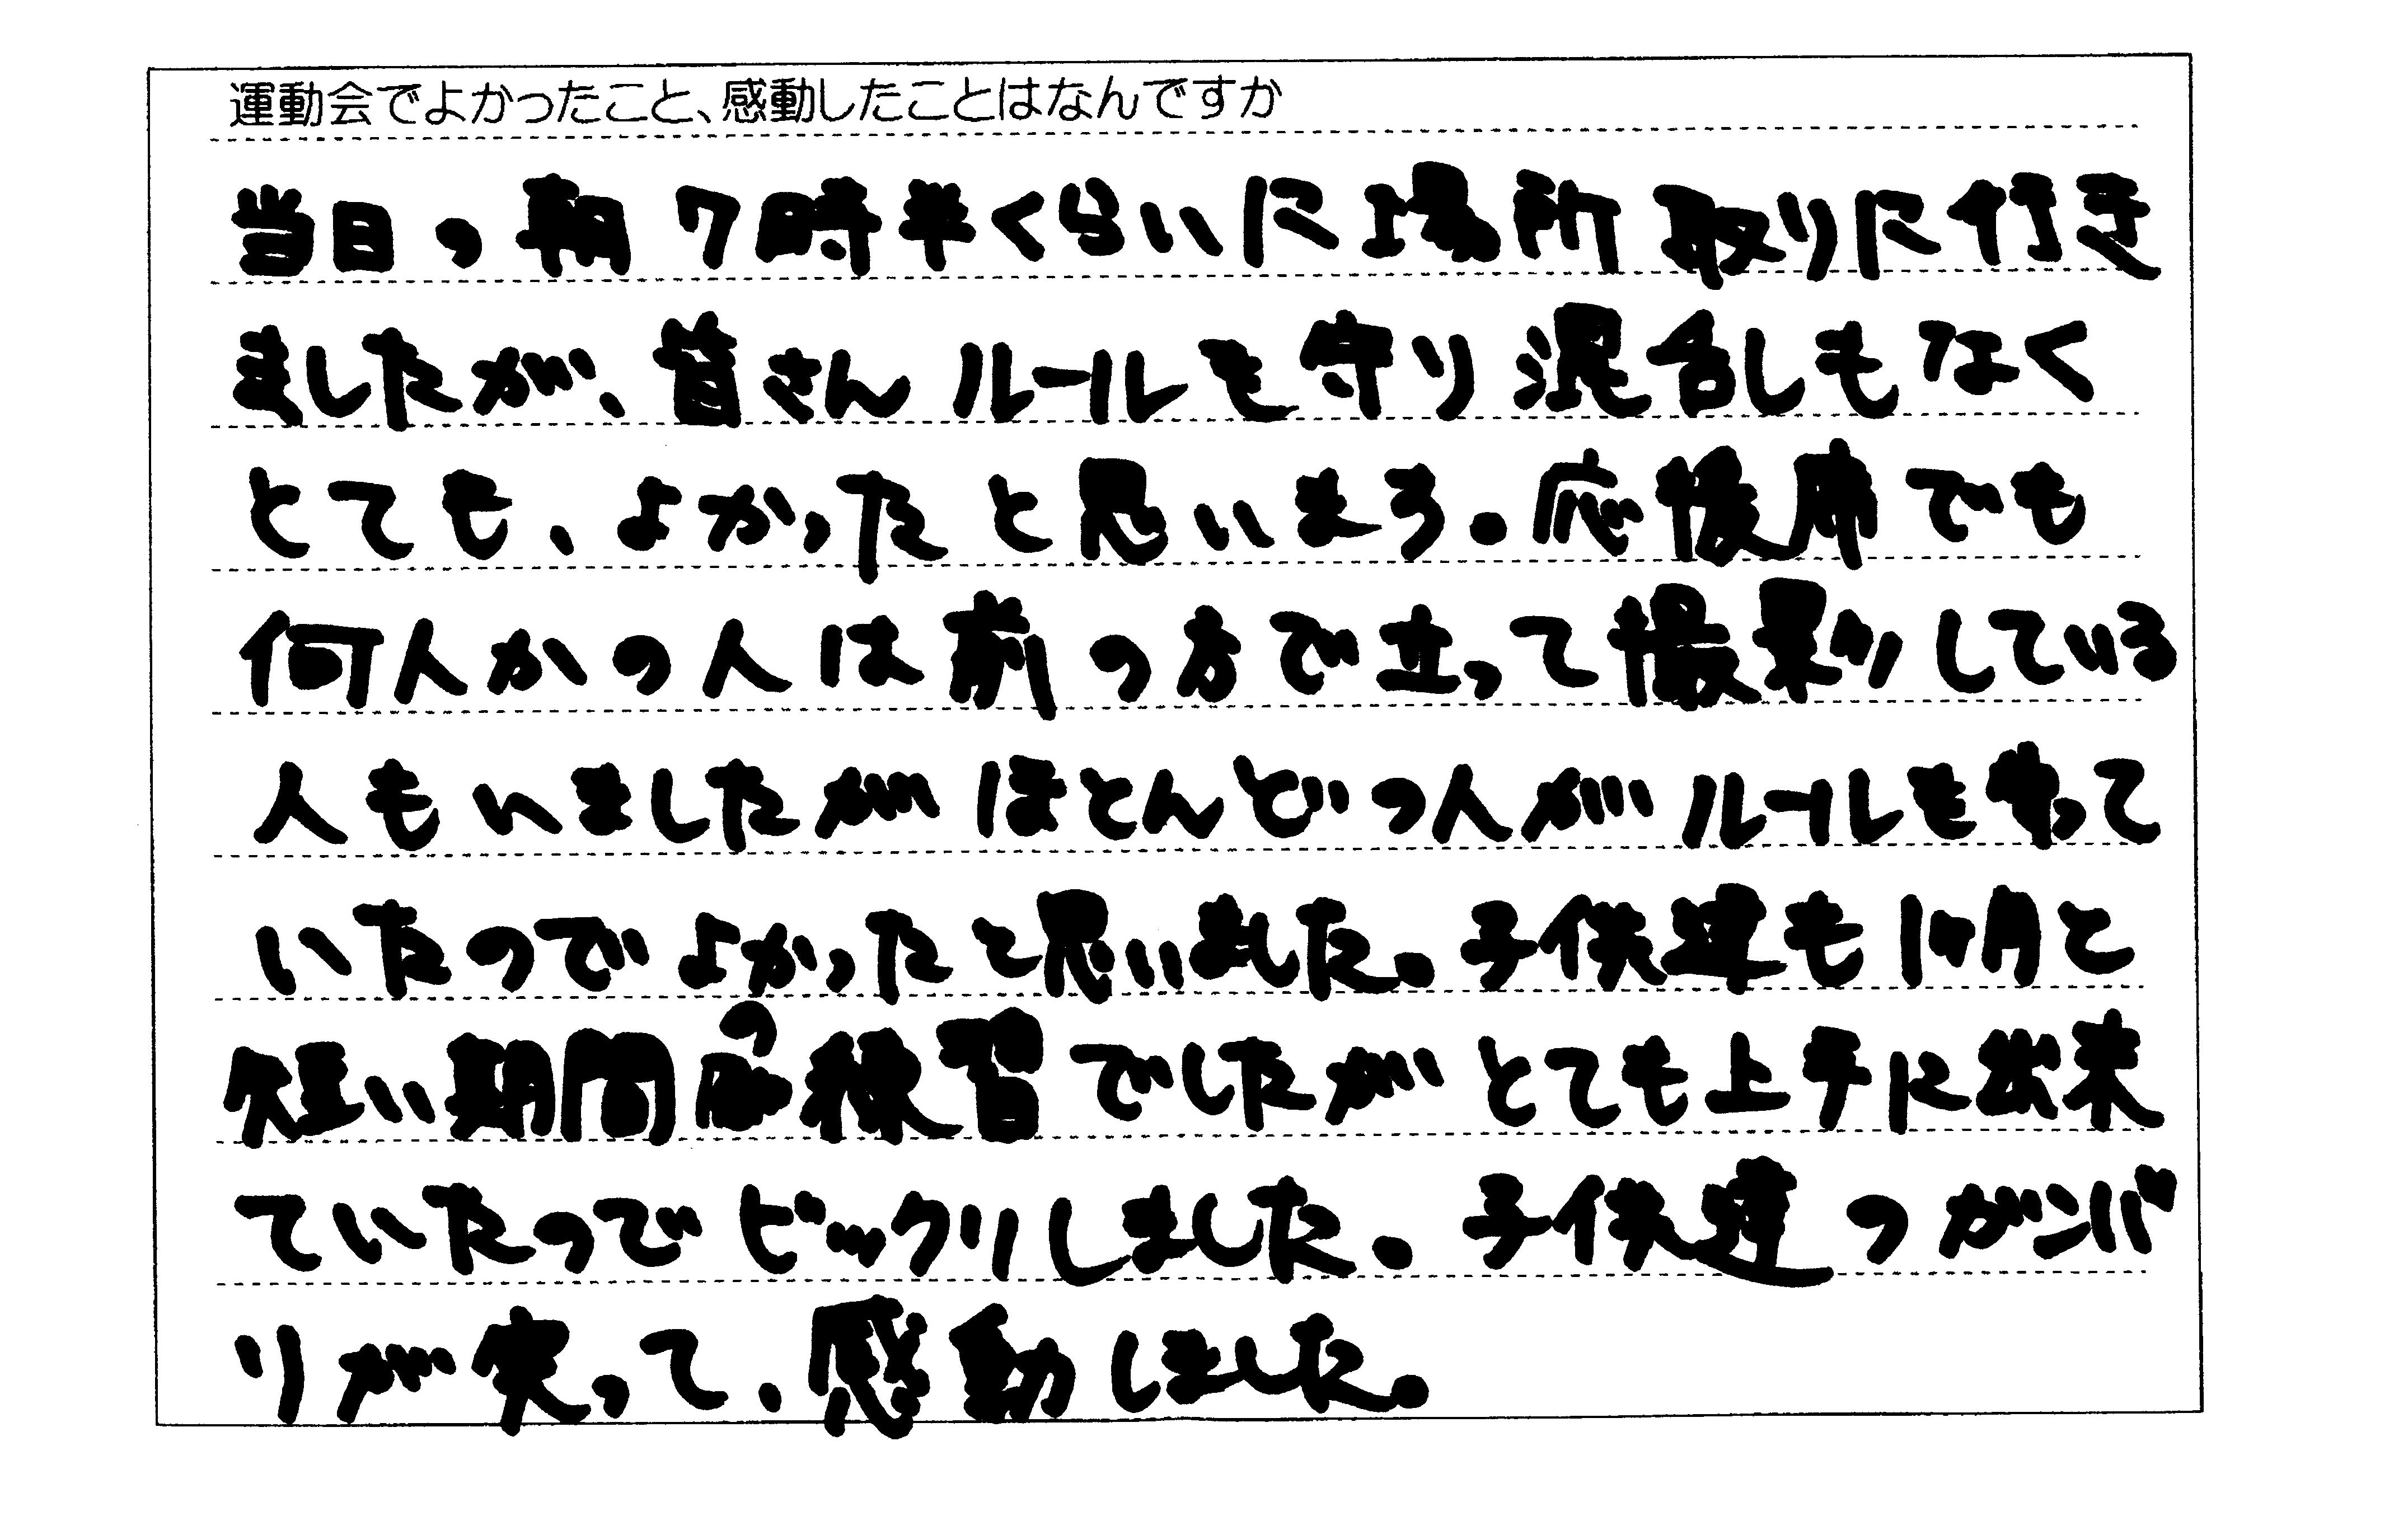 運動会でよかったこと、感動したことはなんですか
当日の朝7時半くらいに場所取りに行き
ましたが、皆さんルールを守り混乱しもなく
とても、よかったと思いまう。応援席でも
何人かの人は前の方で立って撮影りしている
人もいましたがほとんどの人がルールを守って
いたのでよかったと思いました。子供達も1ヶ月と
短い期間の練習でしたがとても上手に出来
ていたのでビックリしました。子供達のガンバ
リが実って、感動しました。